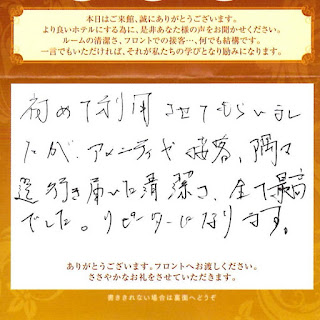 本日はご来館、誠にありがとうございます。
より良いホテルにする為に、是非あなた様の声をお聞かせください。
ルームの清潔さ、フロントでの接客…、何でも結構です。
一言でもいただければ、それが私たちの学びとなり励みになります。
初めて利用させてもらいまし
たが、アメニティや接客、隅々
迄行き届いた清潔さ、全て最高
でした。リピーターになります。
ありがとうございます。フロントへお渡しください。
ささやかなお礼をさせていただきます。
書ききれない場合は裏面へどうぞ